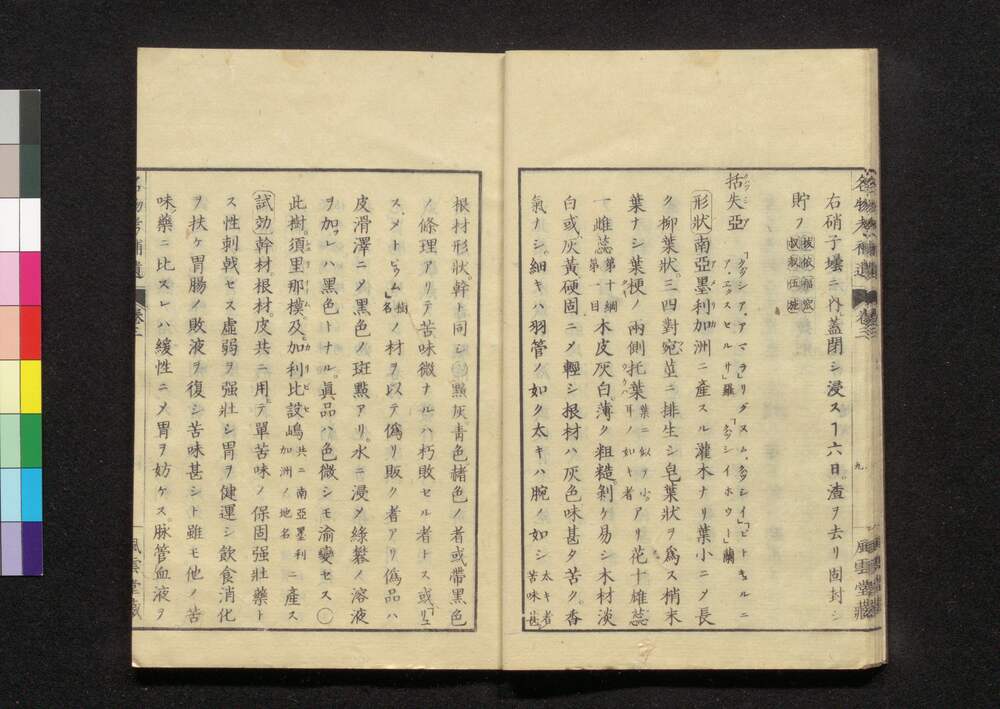 右硝子壜ニ內蓋閉シ浸スヿ六日渣ヲ去リ固封シ
貯フ
括失亞
形狀南亞墨利加洲ニ產スル灌木ナリ葉小ニメ長
ク柳葉狀三四對宛莖ニ排生シ皂葉狀ヲ爲ス梢末
葉ナシ葉梗ノ兩側托葉葉ニ似テ小耳ノ如キ者アリ花十雄蕊
一雌蕊第十綱第一目木皮灰白薄ク粗糙剝ケ易シ木材淡
白或灰黃硬固ニメ輕シ根材ハ灰色味甚タ苦ク香
氣ノシ細キハ羽管ノ如ク太キハ腕ノ如シ太キ者苦味甚
名物考補遺
卷三
九
風雲堂藏
根材形狀幹ト同シ點灰靑色赭色ノ者或帶黑色
ノ條理アリテ苦味微ナルハ朽敗セル者トス或
スメトピウム樹名ノ材ヲ以テ僞リ販ク者アリ僞品ハ
皮滑澤ニメ黑色ノ斑點アリ水ニ浸メ綠礬ノ溶液
ヲ加フレハ黑色トナル眞品ハ色微シモ渝變セス
此樹須里那模及加利比設嶋共ニ南亞墨利加洲ノ地名ニ產ス
試効幹材根材皮共ニ用テ單苦味ノ保固强壯藥ト
ス性刺戟セス虛弱ヲ强壯シ胃ヲ健運シ飮食消化
ヲ扶ケ胃腸ノ敗液ヲ復シ苦味甚シト雖モ他ノ苦
味藥ニ比スレハ緩性ニメ胃ヲ妨ケス脈管血液ヲ